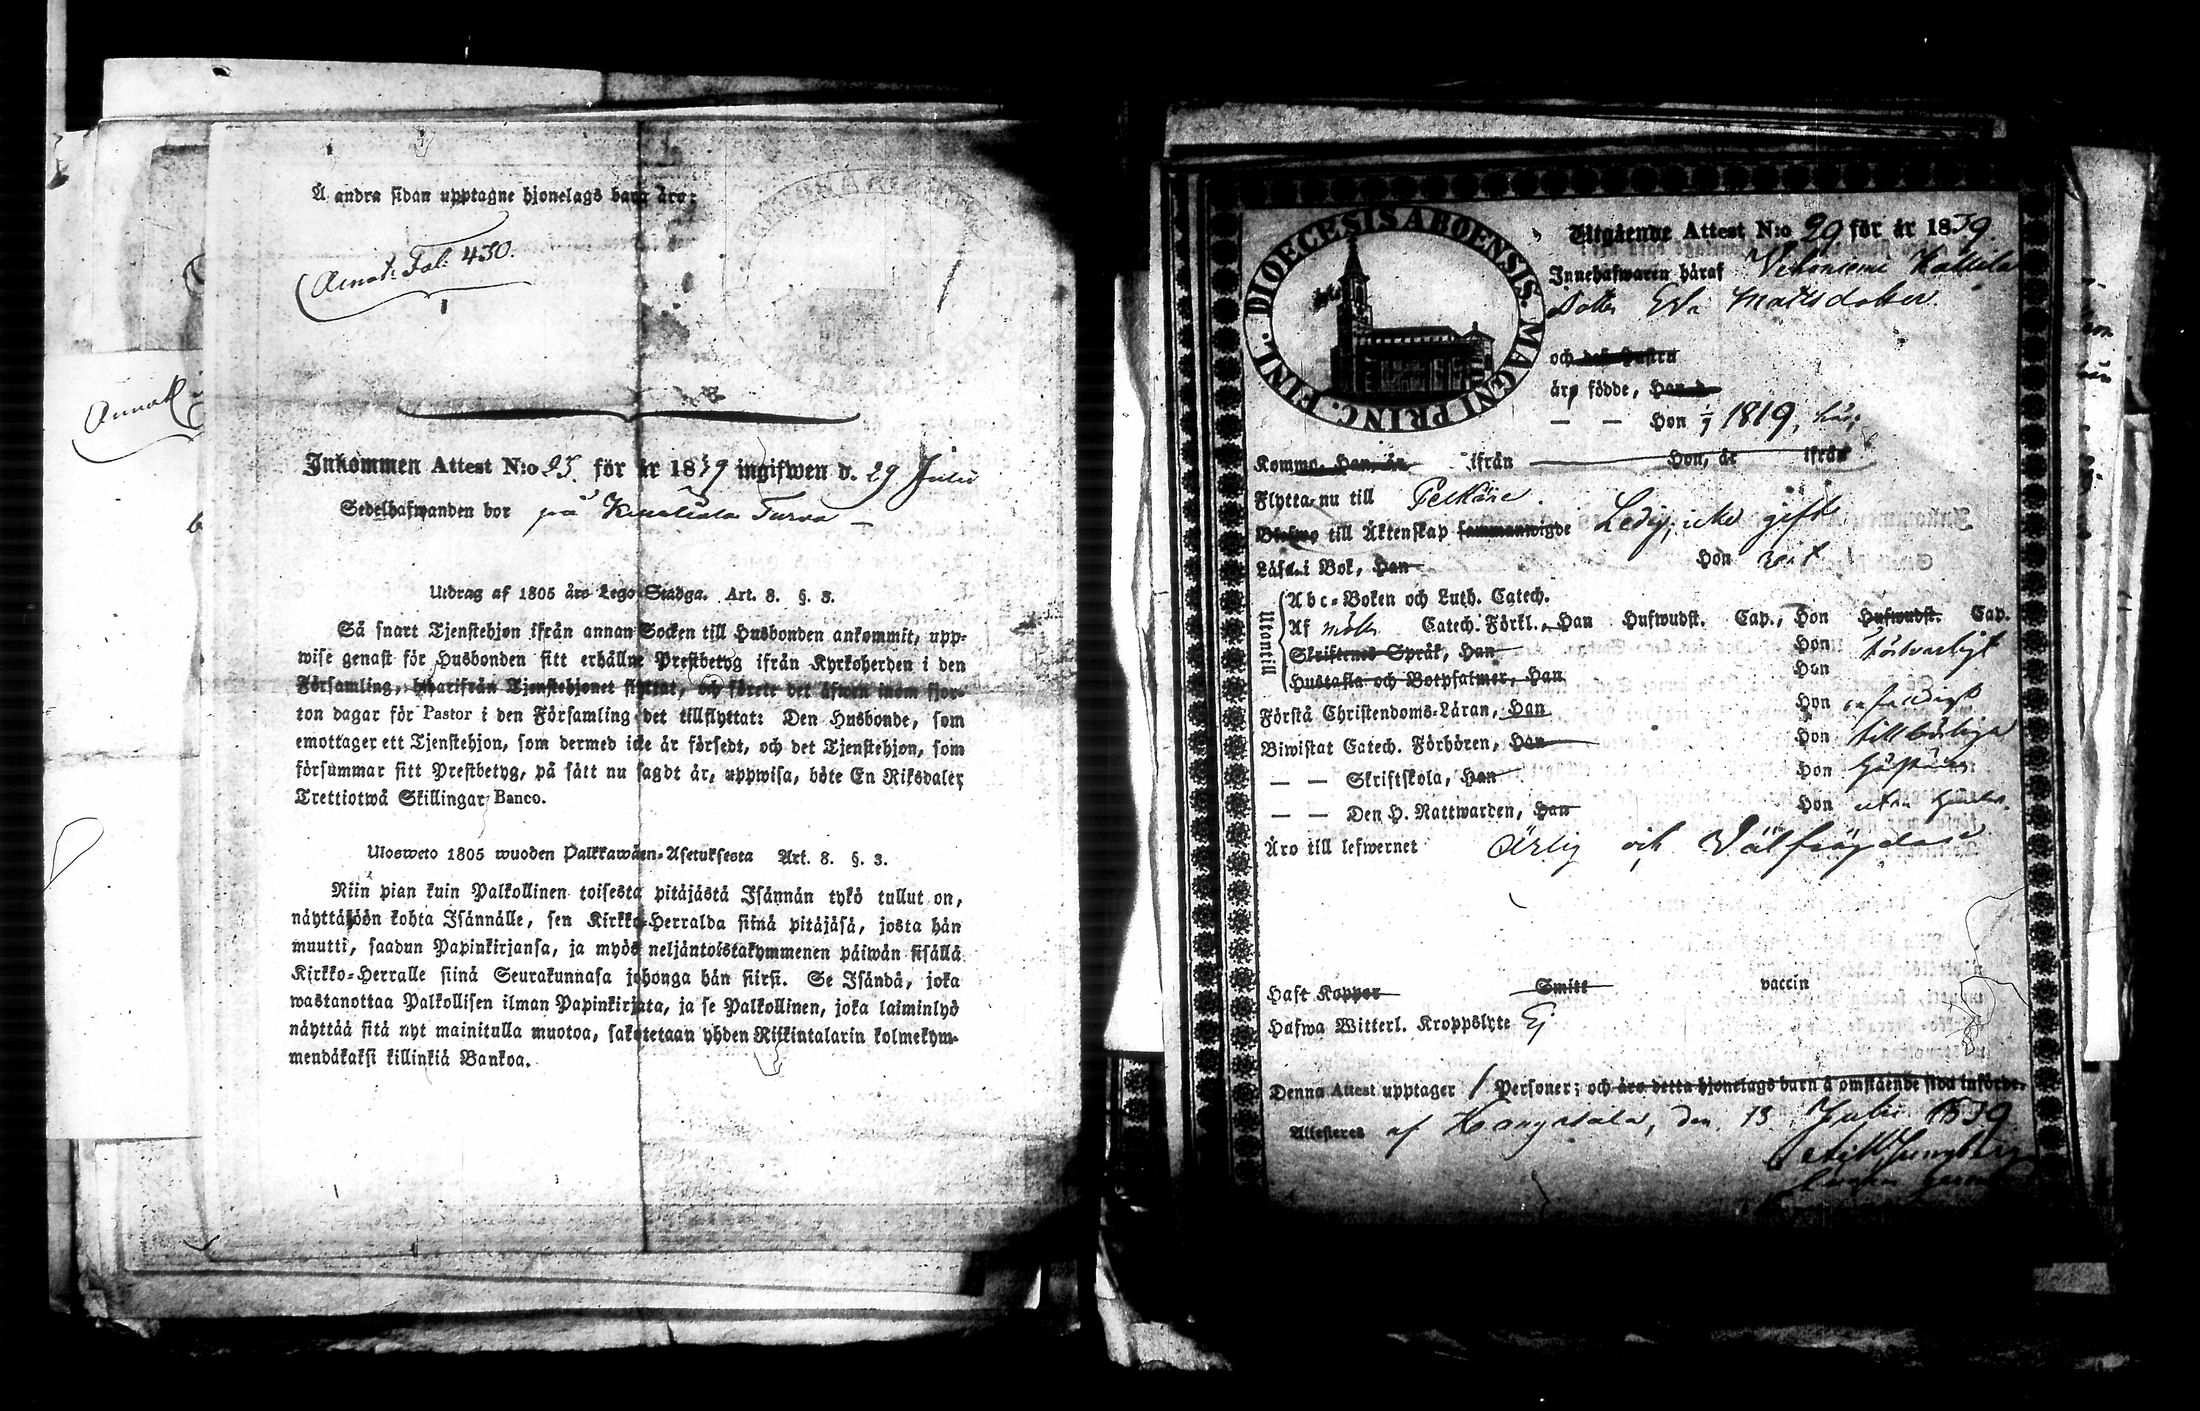 Å andra sidan upptagne hjonelags barn äro:
Annot: Fol: 430.
Annot
Inkommen Attest N:o 25. för år 1839 ingifwen d. 29 Julii
Sedelhafwanden bor på Turva
Utdrag af 1805 års Lego-Stadga. Art. 8. §. 3.
Så snart Tjenstehjon ifrån annan Socken till Husbonden ankommit, upp-
wise genast för Husbonden sitt erhållne Prestbetyg ifrån Kyrkoherden i den
Församling, hwarifrån Tjenstehjonet flyttat, och förete det äfwen inom fjor-
ton dagar för Pastor i den Församling det tillflyttat: Den Husbonde, som
emottager ett Tjenstehjon, som dermed icke är försedt, och det Tjenstehjon, som
försummar sitt Prestbetyg, på sätt nu sagdt är, uppwisa, böte En Riksdaler
Trettiotwå Skillingar Banco.
Ulosweto 1805 wuoden Palkkawäen-Asetuksesta Art. 8. §. 3.
Niin pian kuin Palkollinen toisesta pitäjästä Isännän tykö tullut on,
näyttäköön kohta Isännälle, sen Kirkko-Herralda siinä pitäjäsä, josta hän
muutti, saadun Papinkirjansa, ja myös neljäntoistakymmenen päiwän sisällä
Kirkko-Herralle siinä Seurakunnasa johonga hän siirsi. Se Isändä, joka
wastanottaa Palkollisen ilman Papinkirjata, ja se Palkollinen, joka laiminlyö
näyttää sitä nyt mainitulla muotoa, sakotetaan yhden Riikintalarin kolmekym-
mendäkaksi killinkiä Bankoa.
DIOECESIS ABOENSIS. MAGNI PRINC. FINL.
Utgående Attest N:o 29 för år 1839
Innehafwarin häraf Vehoniemi Kallila
Dotter Eva Matsdotter
och des Hustru
äro födde, Han
— — Hon 1/7 1819, här;
Komma, Han, år ifrån Hon, år ifrån
Flytta nu till Pelkäne.
Blefwo till Äktenskap sammanwigde Ledig, icke gift
Läsa i Bok, Han Hon
Utantill
Abc-Boken och Luth. Catech.
Af Catech. Förkl., Han Hufwudst. Cap., Hon Hufwudst. Cap.
Skriftenes Språk, Han Hon försvarligt
Hustafla och Botpsalmer, Han Hon
Förstå Christendoms-Läran, Han Hon
Biwistat Catech. Förhören, Han Hon
— — Skriftskola, Han Hon
— — Den H. Nattwarden, Han Hon
Äro till lefwernet Ärlig och Välfrägdad
Haft Koppor Smitt vaccin
Hafwa Witterl. Kroppslyte Ej
Denna Attest upptager 1 Personer; och äro detta hjonelags barn å omstående sida införde.
Attesteres af Kangasala, den 13 Julii 1839